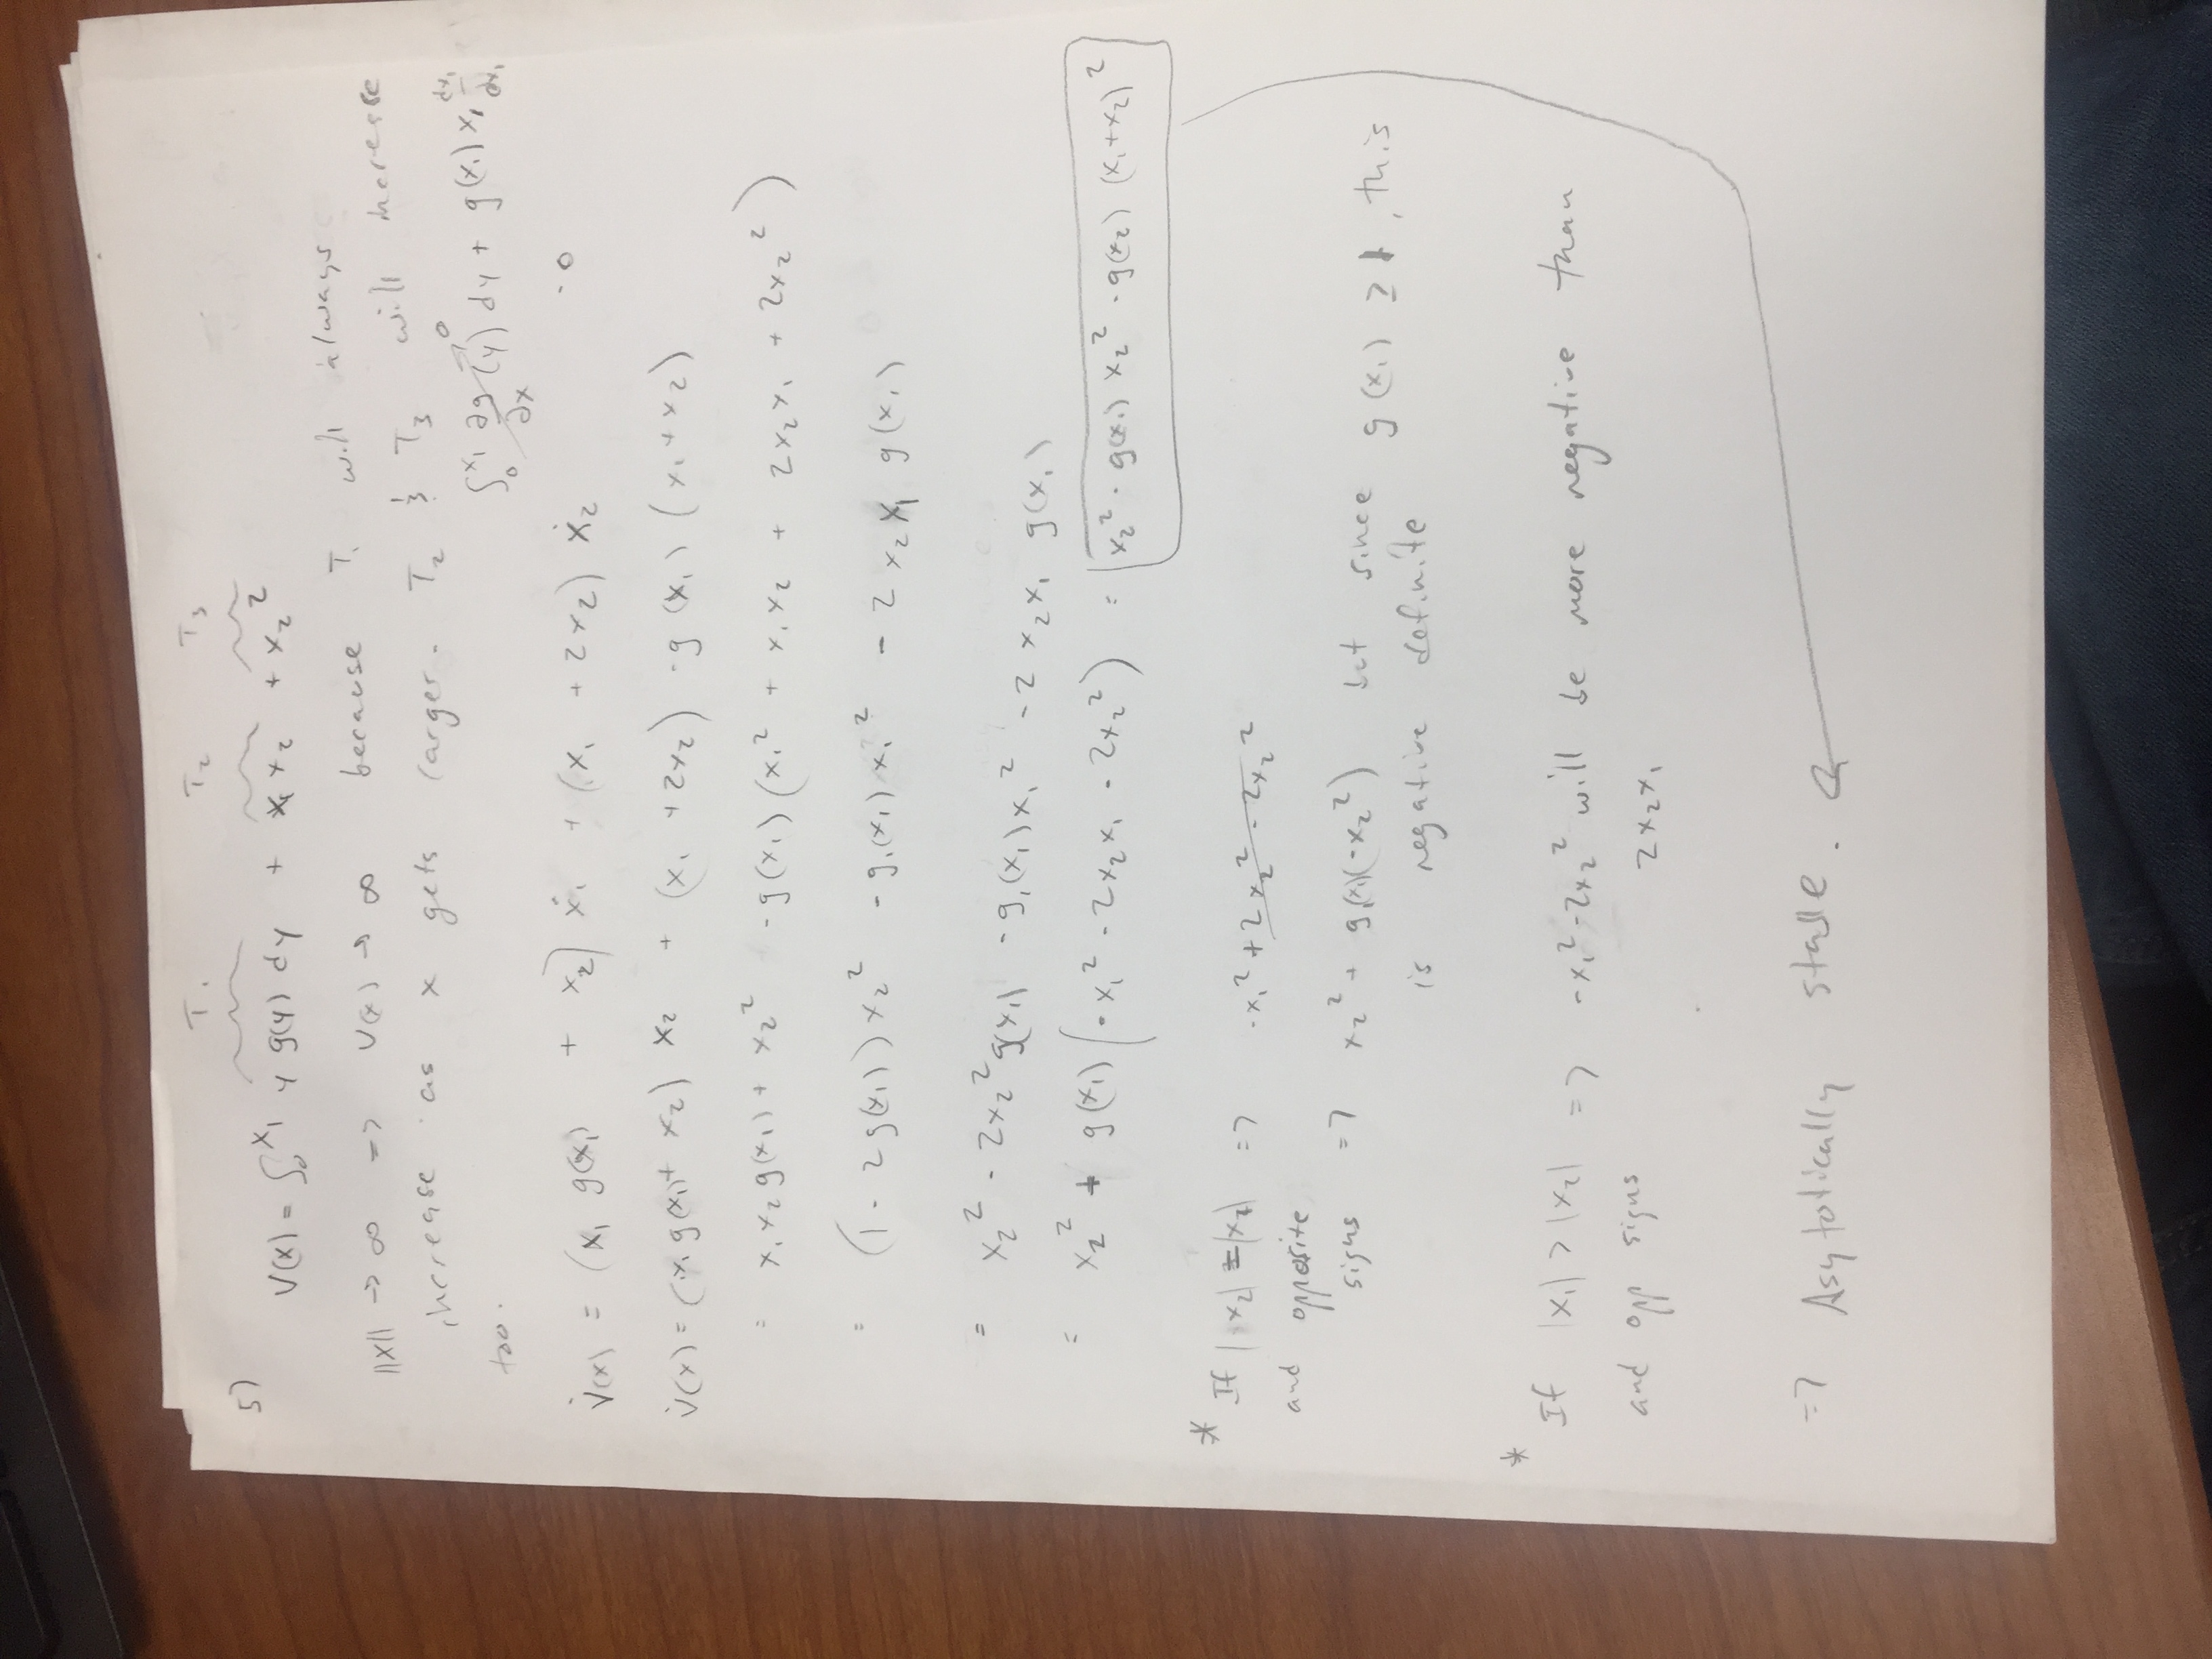 T₁ T₂ T₃
5)
V(x) = ∫₀^x₁ y g(y) dy + x₁ x₂ + x₂²
||x|| → ∞ => V(x) → ∞ because T₁ will always
increase as x gets larger. T₂ & T₃ will increase
too.
∫₀^x₁ ∂g/∂x (y) dy → 0 + g(x₁) x₁ dx₁/dx₁
V̇(x) = (x₁ g(x₁) + x₂) ẋ₁ + (x₁ + 2x₂) ẋ₂ - 0
V̇(x) = (x₁ g(x₁) + x₂) x₂ + (x₁ + 2x₂) -g(x₁) (x₁ + x₂)
= x₁x₂ g(x₁) + x₂² - g(x₁) (x₁² + x₁x₂ + 2x₂x₁ + 2x₂²)
= (1 - 2g(x₁)) x₂² - g₁(x₁) x₁² - 2 x₂x₁ g(x₁)
= x₂² - 2x₂² g(x₁) - g₁(x₁) x₁² - 2 x₂x₁ g(x₁)
= x₂² + g(x₁) (-x₁² - 2x₂x₁ - 2x₂²) = x₂² - g(x₁) x₂² - g(x₂) (x₁+x₂)²
* If |x₂| = |x₁| => -x₁² + 2x₂² - 2x₂²
and opposite
signs => x₂² + g₁(x₁)(-x₂²) but since g(x₁) ≥ 1, this
is negative definite
* If |x₁| > |x₂| => -x₁² - 2x₂² will be more negative than
and opp signs 2x₂x₁
=> Asytotically stable.